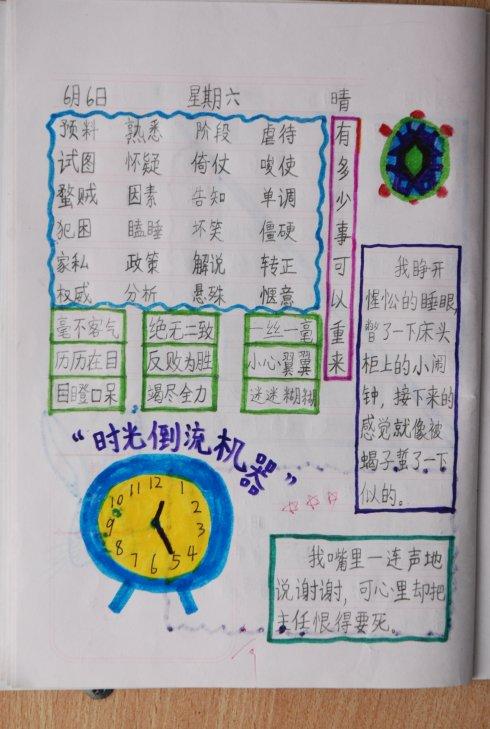 6月6日 星期六 晴
预料 熟悉 阶段 虐待
试图 怀疑 倚仗 唆使
蟊贼 因素 告知 单调
犯困 瞌睡 坏笑 僵硬
家私 政策 解说 转正
权威 分析 悬殊 惬意
有多少事可以重来
毫不客气 绝无二致 一丝一毫
历历在目 反败为胜 小心翼翼
目瞪口呆 竭尽全力 迷迷糊糊
我睁开
惺忪的睡眼,
瞥了一下床头
柜上的小闹
钟，接下来的
感觉就像被
蝎子蜇了一下
似的。
“时光倒流机器”
12
1
2
3
4
5
6
7
8
9
10
11
我嘴里一连声地
说谢谢，可心里却把
主任恨得要死。